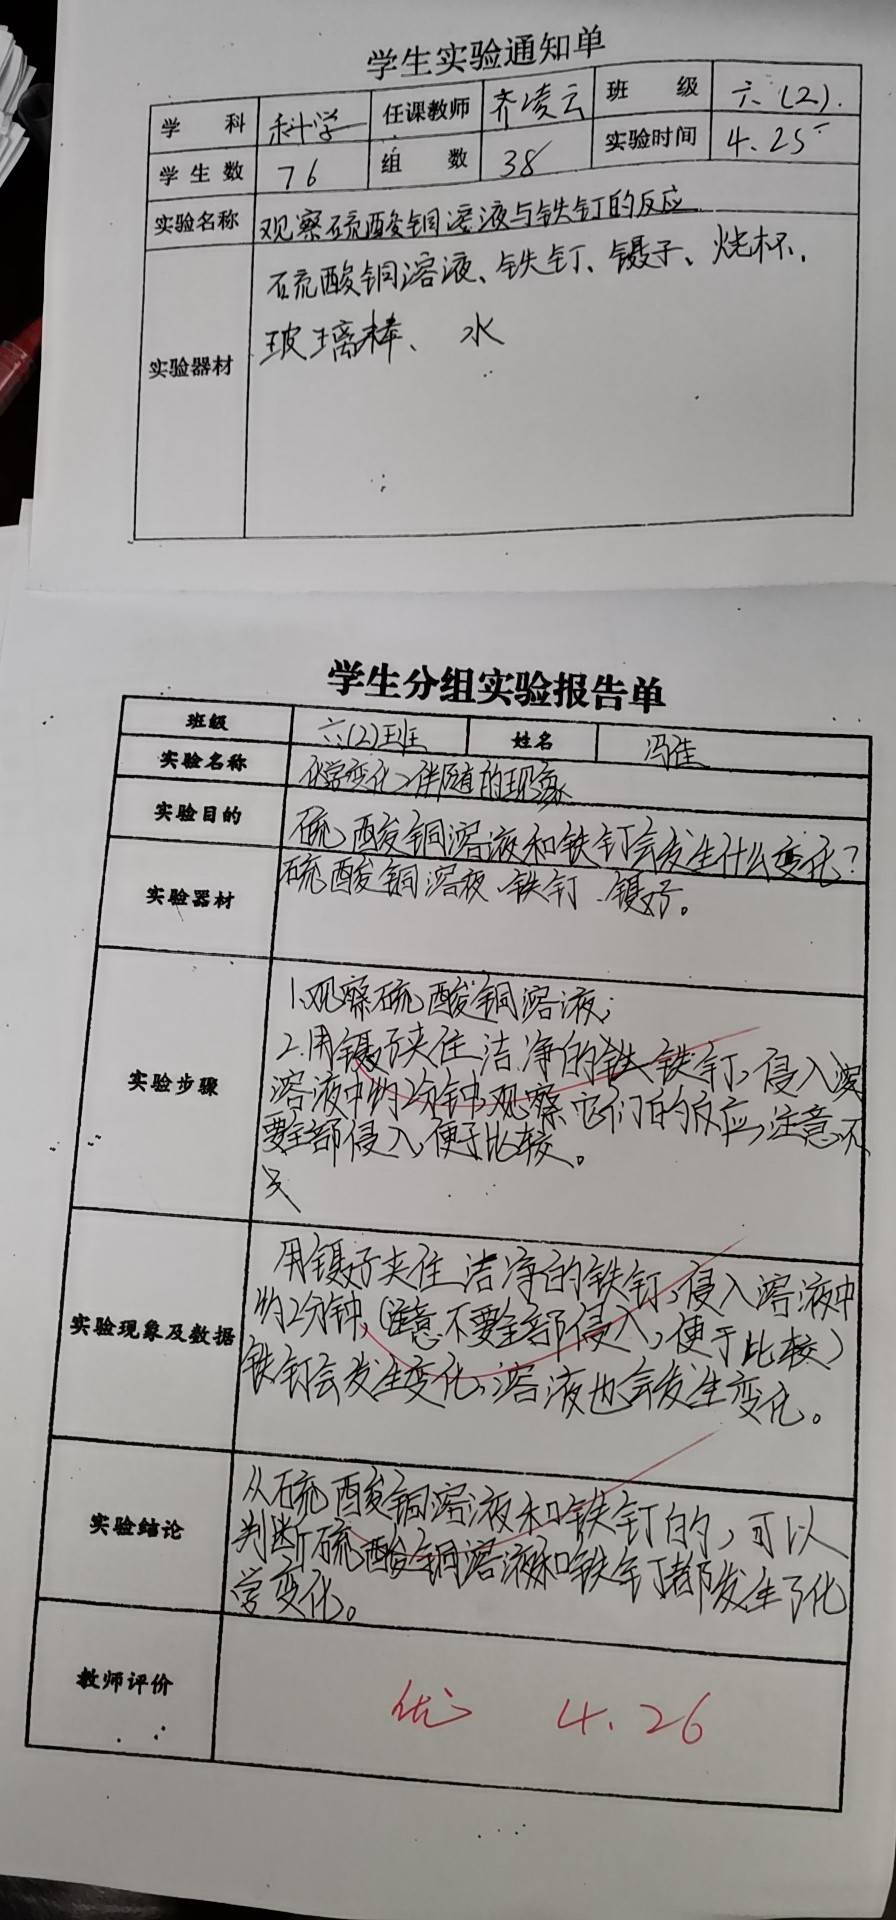 学生实验通知单
学 科 科学 任课教师 齐凌云 班 级 六、(2).
学生数 76 组 数 38 实验时间 4.25
实验名称 观察硫酸铜溶液与铁钉的反应
实验器材 硫酸铜溶液、铁钉、镊子、烧杯、
玻璃棒、 水
学生分组实验报告单
班级 六(2)班 姓名 冯佳
实验名称 化学变化、伴随的现象
实验目的 硫酸铜溶液和铁钉会发生什么变化?
实验器材 硫酸铜溶液、铁钉、镊子。
实验步骤 1.观察硫酸铜溶液;
2.用镊子夹住洁净的铁钉,侵入
溶液中约2分钟,观察它们的反应,注意不
要全部侵入,便于比较。
实验现象及数据 用镊子夹住洁净的铁钉,侵入溶液中
约2分钟,(注意不要全部侵入,便于比较)
铁钉会发生变化,溶液也会发生变化。
实验结论 从硫酸铜溶液和铁钉的,可以
判断硫酸铜溶液和铁钉都发生了化
学变化。
教师评价 优 4.26